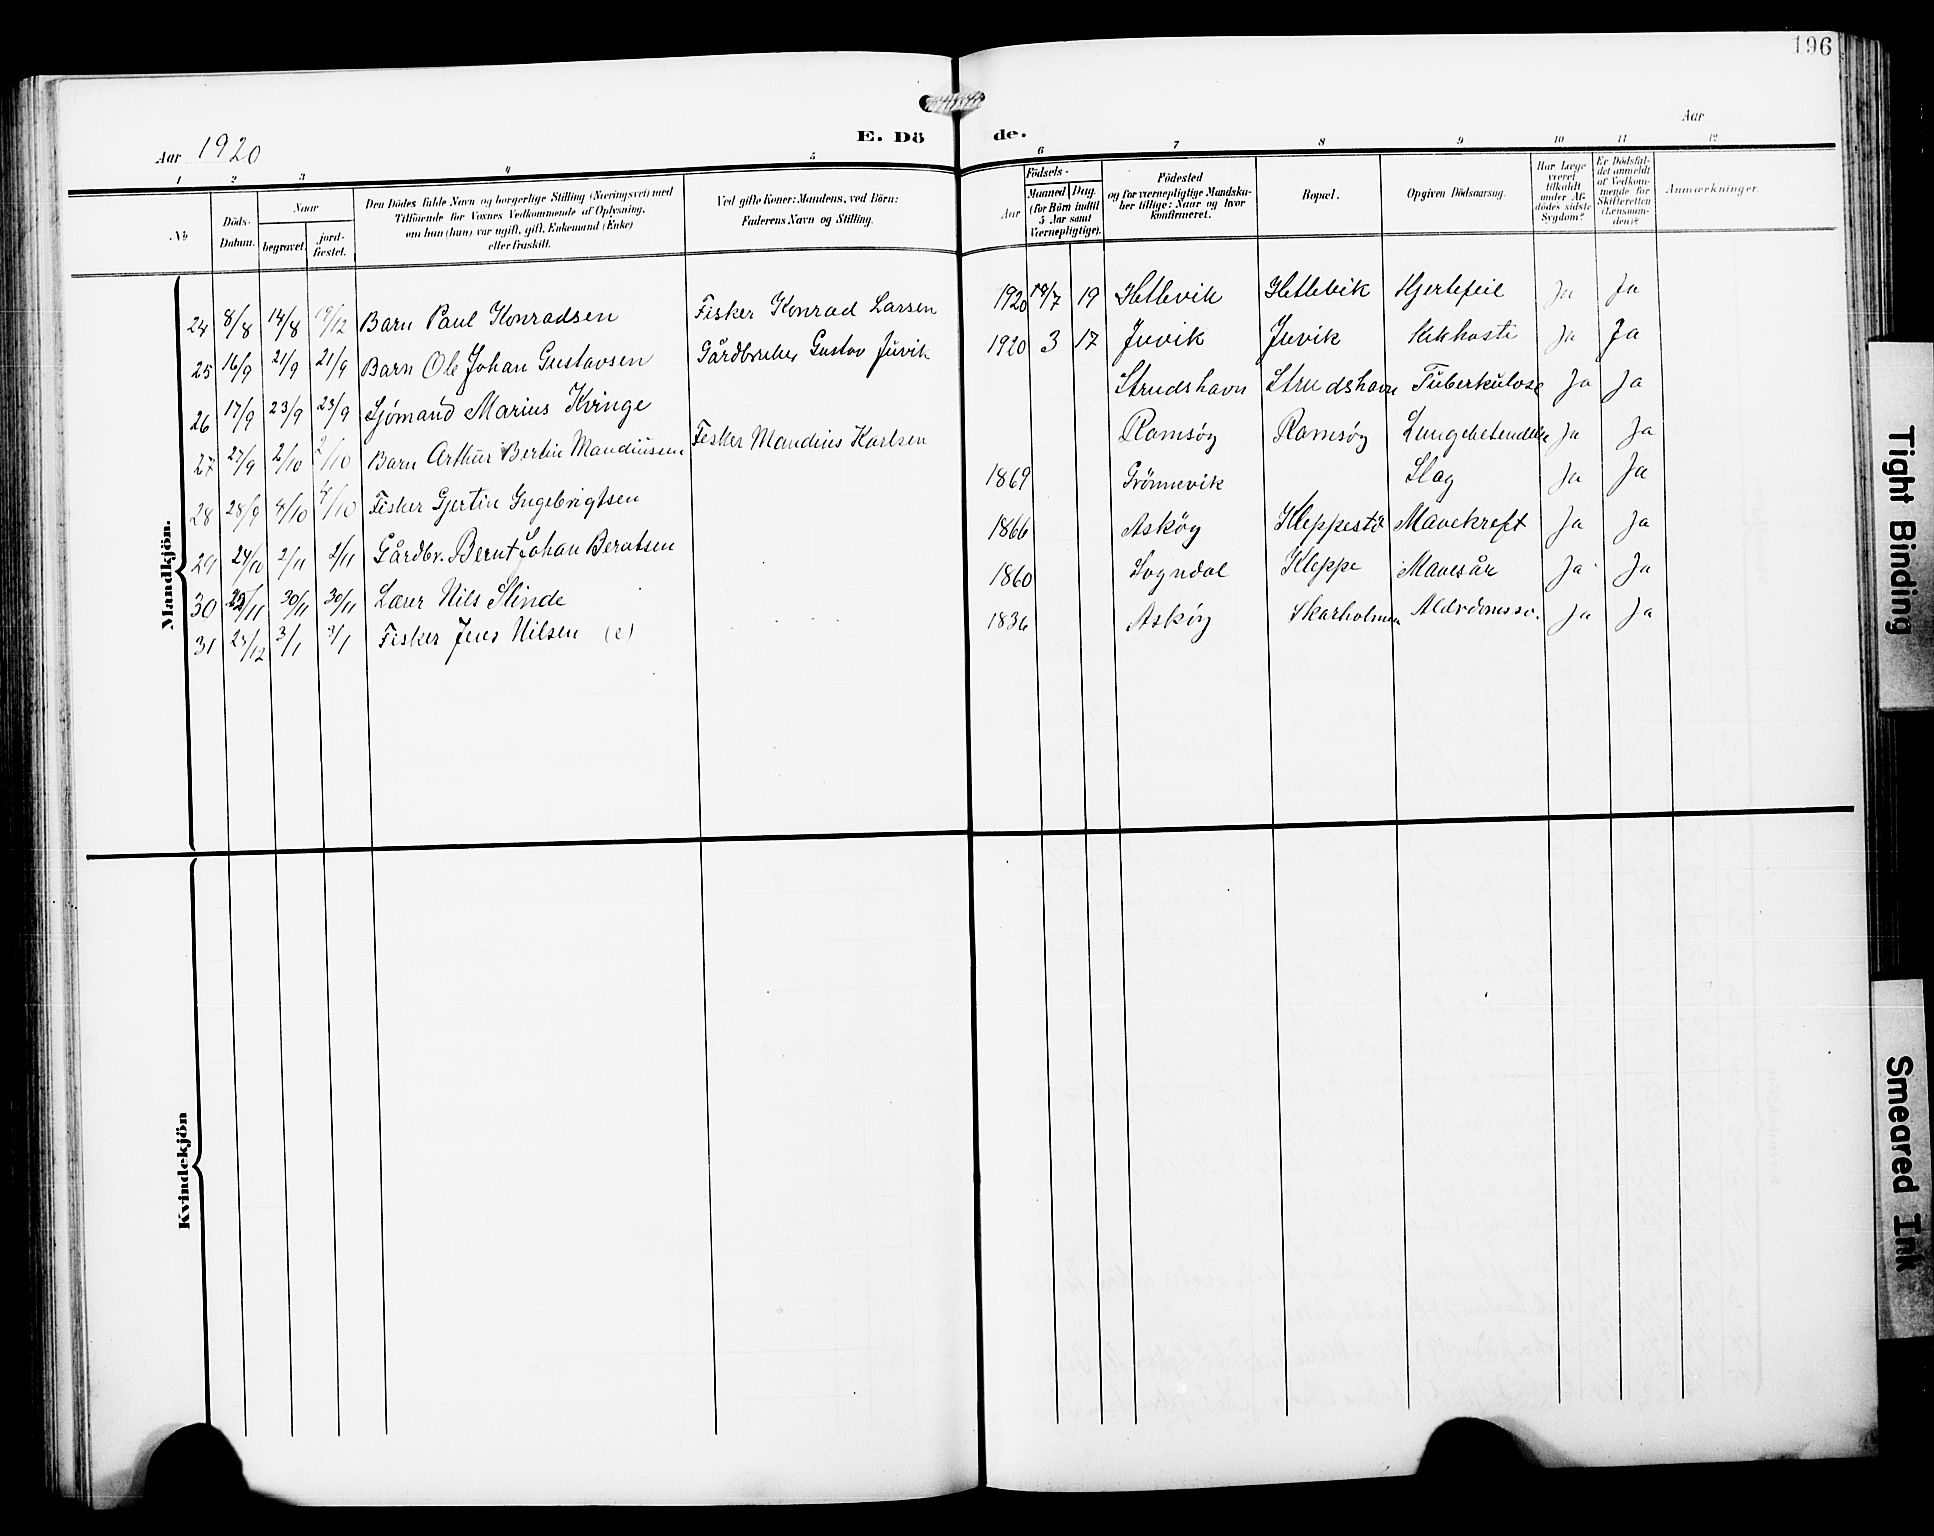 196
Aar 1920
E. Dö de.
Aar
1 2 3 4 5 6 7 8 9 10 11 12
№
Döds-Datum.
Naar
begravet.
jord-fæstet.
Den Dödes fulde Navn og borgerlige Stilling (Næringsvei) med
Tilföiende for Voxnes Vedkommende af Oplysning,
om han (hun) var ugift, gift, Enkemand (Enke)
eller fraskilt.
Ved gifte Koner: Mandens, ved Börn:
Faderens Navn og Stilling.
Födsels-
Aar
Maaned Dag.
(for Börn indtil
5 Aar samt
Værnepligtige).
Födested
og for værnepligtige Mandska-
ber tillige: Naar og hvor
Konfirmeret.
Bopæl.
Opgiven Dödsaarsag.
Har Læge
været
tilkaldt
under Af-
dödes sidste
Sygdom?
Er Dödsfal-
det anmeldt
af Vedkom-
mende for
Skifteretten
(Lensman-
den)?
Anmærkninger.
Mandkjön.
24 8/8 14/8 19/12 Barn Paul Konradsen Fisker Konrad Larsen 1920 19/7 19 Hetlevik Hetlevik Hjertefeil Ja Ja
25 16/9 21/9 21/9 Barn Ole Johan Gustavsen Gårdbruker Gustav Juvik 1920 3 17 Juvik Juvik Kikhoste Ja Ja
26 17/9 23/9 23/9 Sjømand Marius Kvinge Strudshavn Strudshavn Tuberkulose Ja Ja
27 27/9 2/10 2/10 Barn Arthur Bertin Mandiussen Fisker Mandius Karlsen Ramsøy Ramsøy Lungebetendelse Ja Ja
28 28/9 4/10 4/10 Fisker Gjertin Ingebrigtsen 1869 Grönnevik Slag Ja Ja
29 24/10 2/11 2/11 Gårdbr. Bernt Johan Berntsen 1866 Askøy Kleppestø Mavekreft Ja Ja
30 /11 30/11 30/11 Lærer Nils Slinde 1860 Sogndal Kleppe Mavesår Ja Ja
31 23/12 3/1 3/1 Fisker Jens Nilsen (e) 1836 Askøy Skarholmen Alderdomssv. Ja Ja
Kvindekjön
Tight Binding
Smeared Ink